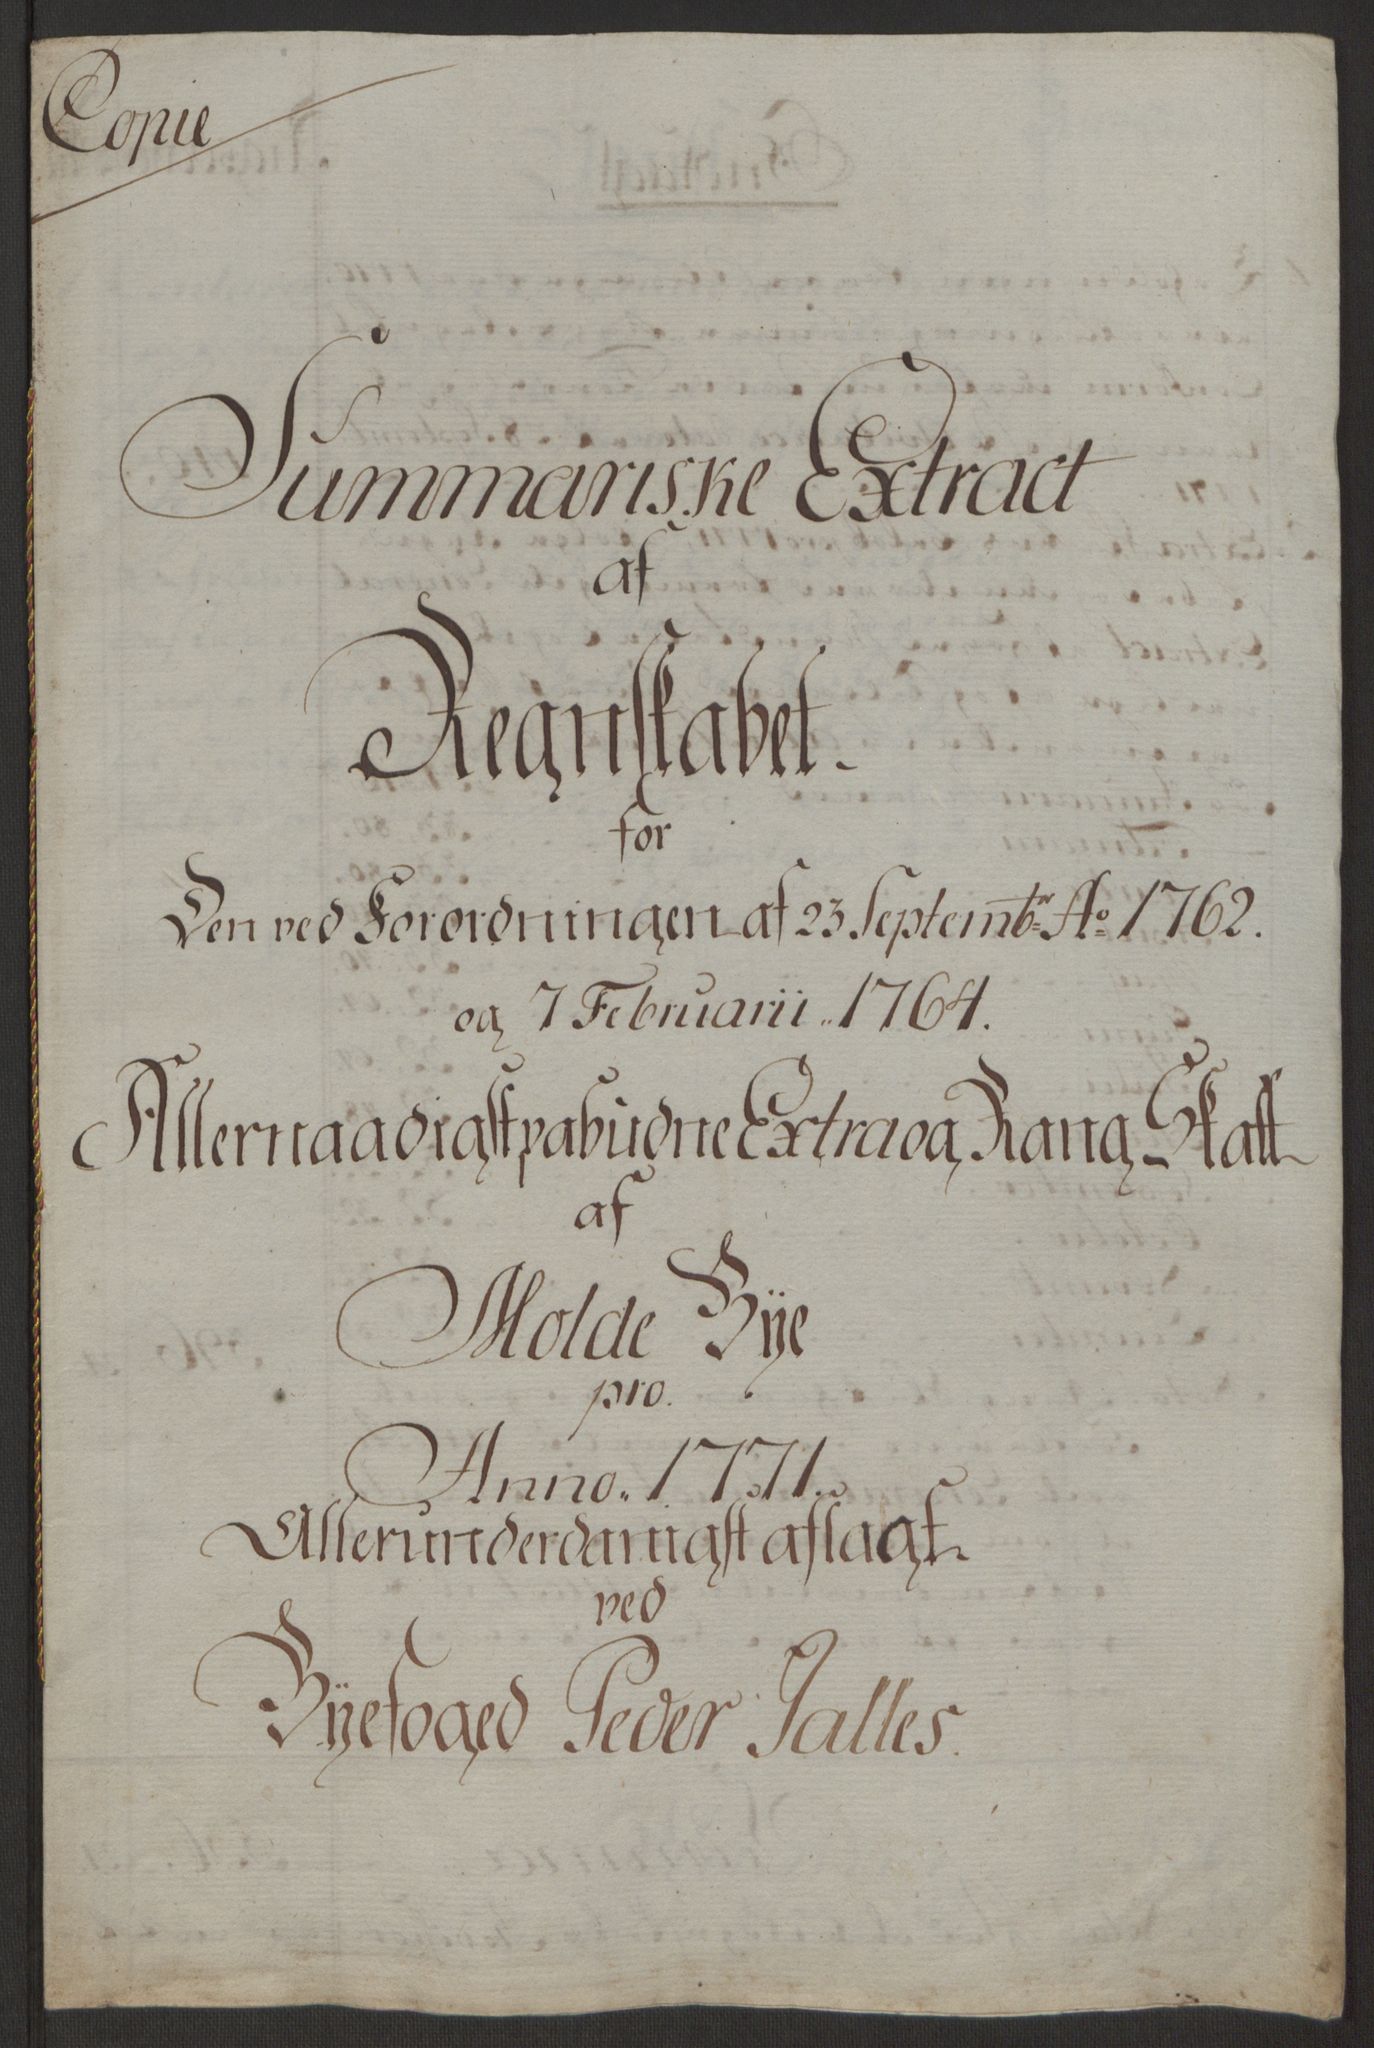 Copie
Summariske Extract
af
Regnskabet.
for
Den ved Forordningen af 23 Septembr. Ao. 1762.
og 7 Februarii 1764.
Allernaadigst pabudne Extra og Rang Skatt
af
Molde Bÿe
pro.
Anno. 1771.
Allerunderdanigst aflagt
ved
Bÿefoged Peder Jalles.